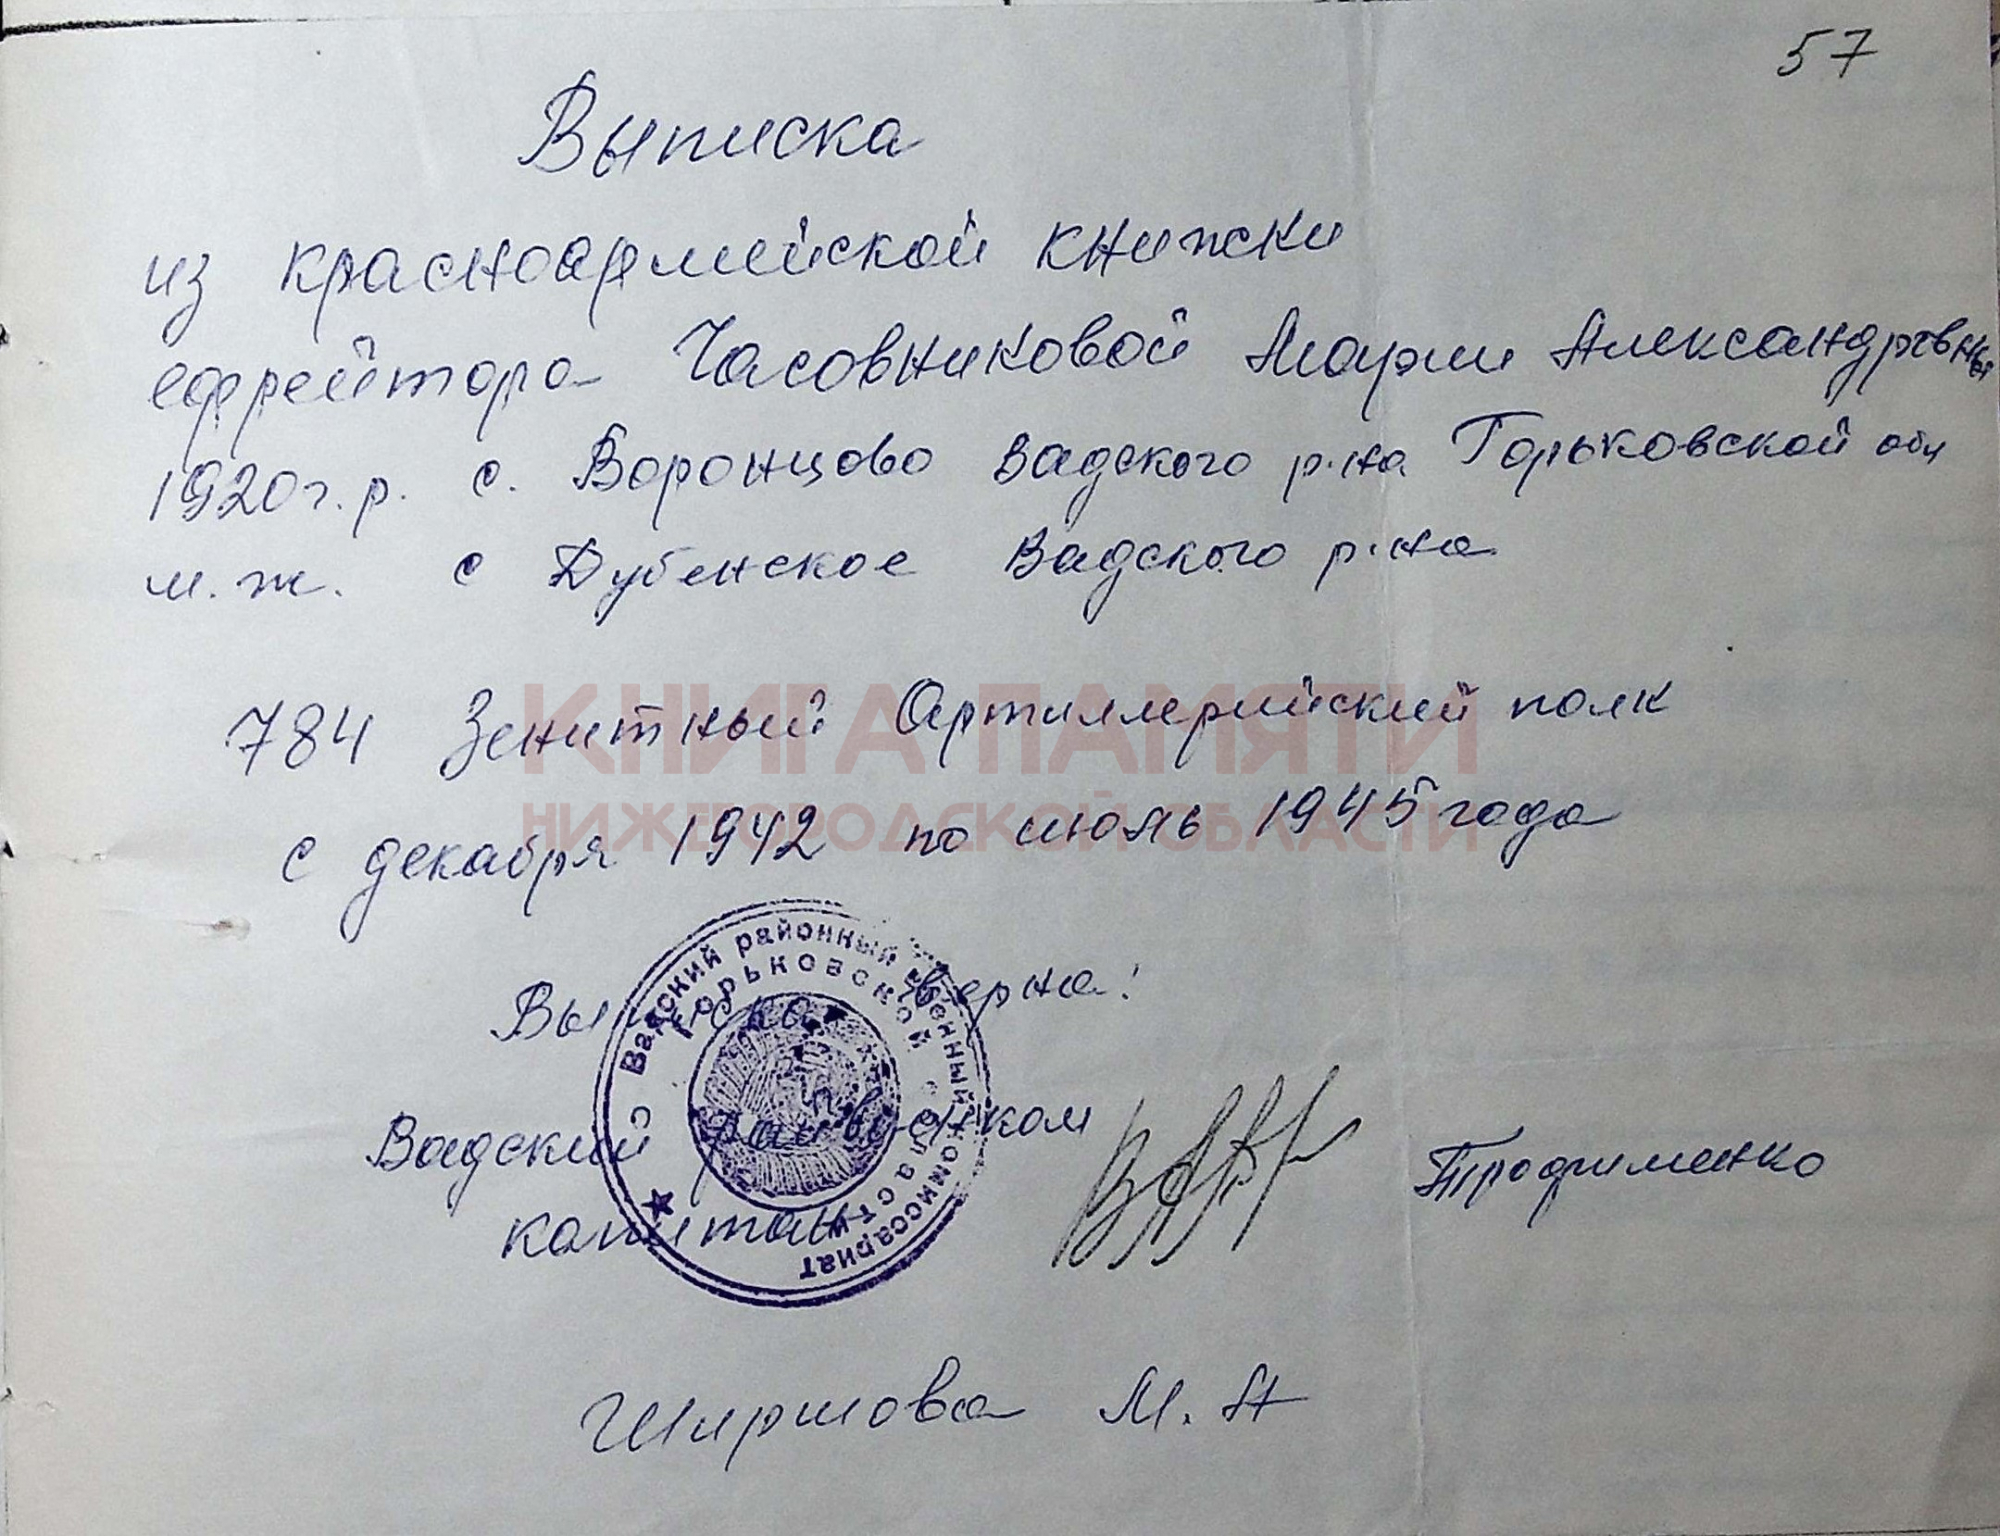 57
Выписка
из красноармейской книжки
ефрейтора Часовниковой Марии Александровны
1920 г.р. с. Воронцово Вадского р-на Горьковской обл
м.ж. с Дубенское Вадского р-на
784 Зенитный Артиллерийский полк
с декабря 1942 по июль 1945 года
КНИГА ПАМЯТИ
НИЖЕГОРОДСКОЙ ОБЛАСТИ
Выписка верна:
Вадский райвоенком
капитан Трофименко
Вадский районный военный комиссариат
Горьковской области
Ширшова М. А